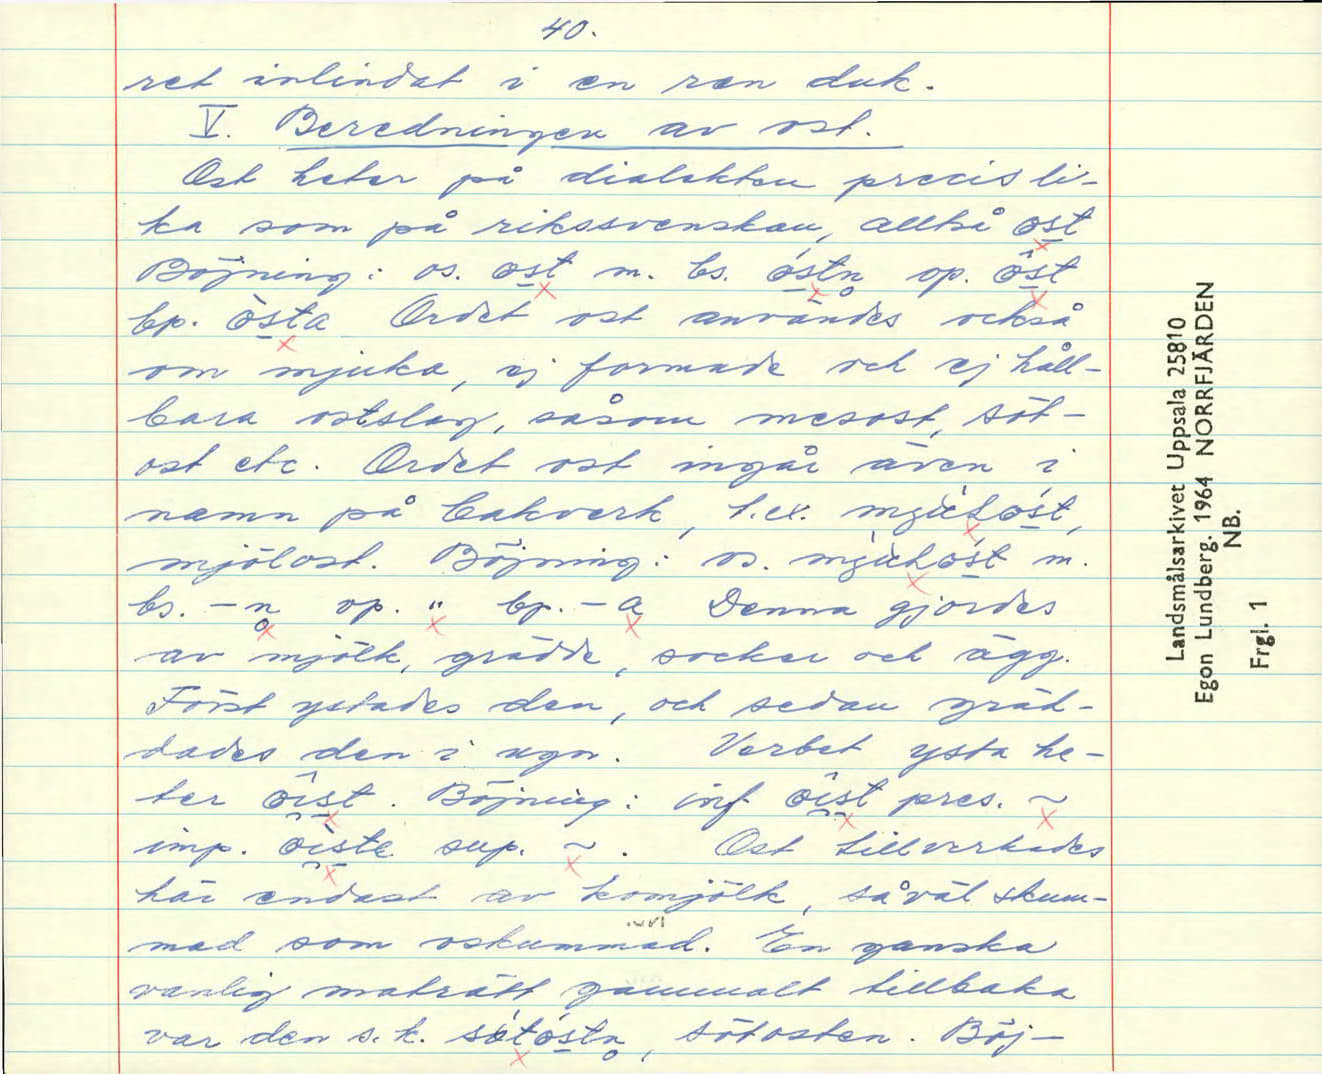 40.
ret inlindat i en ren duk.
V. Beredningen av ost.
Ost heter på dialekten precis li-
ka som på rikssvenskan, alltså ost
Böjning: os. ost m. bs. óstn̥ op. ôst
bp. òsta Ordet ost användes också
om mjuka, ej formade och ej håll-
bara ostslag, såsom mesost, söt-
ost etc. Ordet ost ingår även i
namn på bakverk, t.ex.
mjölost. Böjning: os. m.
bs. -n̥ op. " bp. -a Denna gjordes
av mjölk, grädde, socker och ägg.
Först ystades den, och sedan gräd-
dades den i ugn. Verbet ysta he-
ter öist. Böjning: inf öist pres. ~
imp. öiste sup. ~. Ost tillverkades
här endast av komjölk, såväl skum-
mad som oskummad. En ganska
vanlig maträtt gammalt tillbaka
var den s.k. sötóstn̥, sötosten. Böj-
Landsmålsarkivet Uppsala 25810
Egon Lundberg. 1964 NORRFJÄRDEN
NB.
Frgl. 1